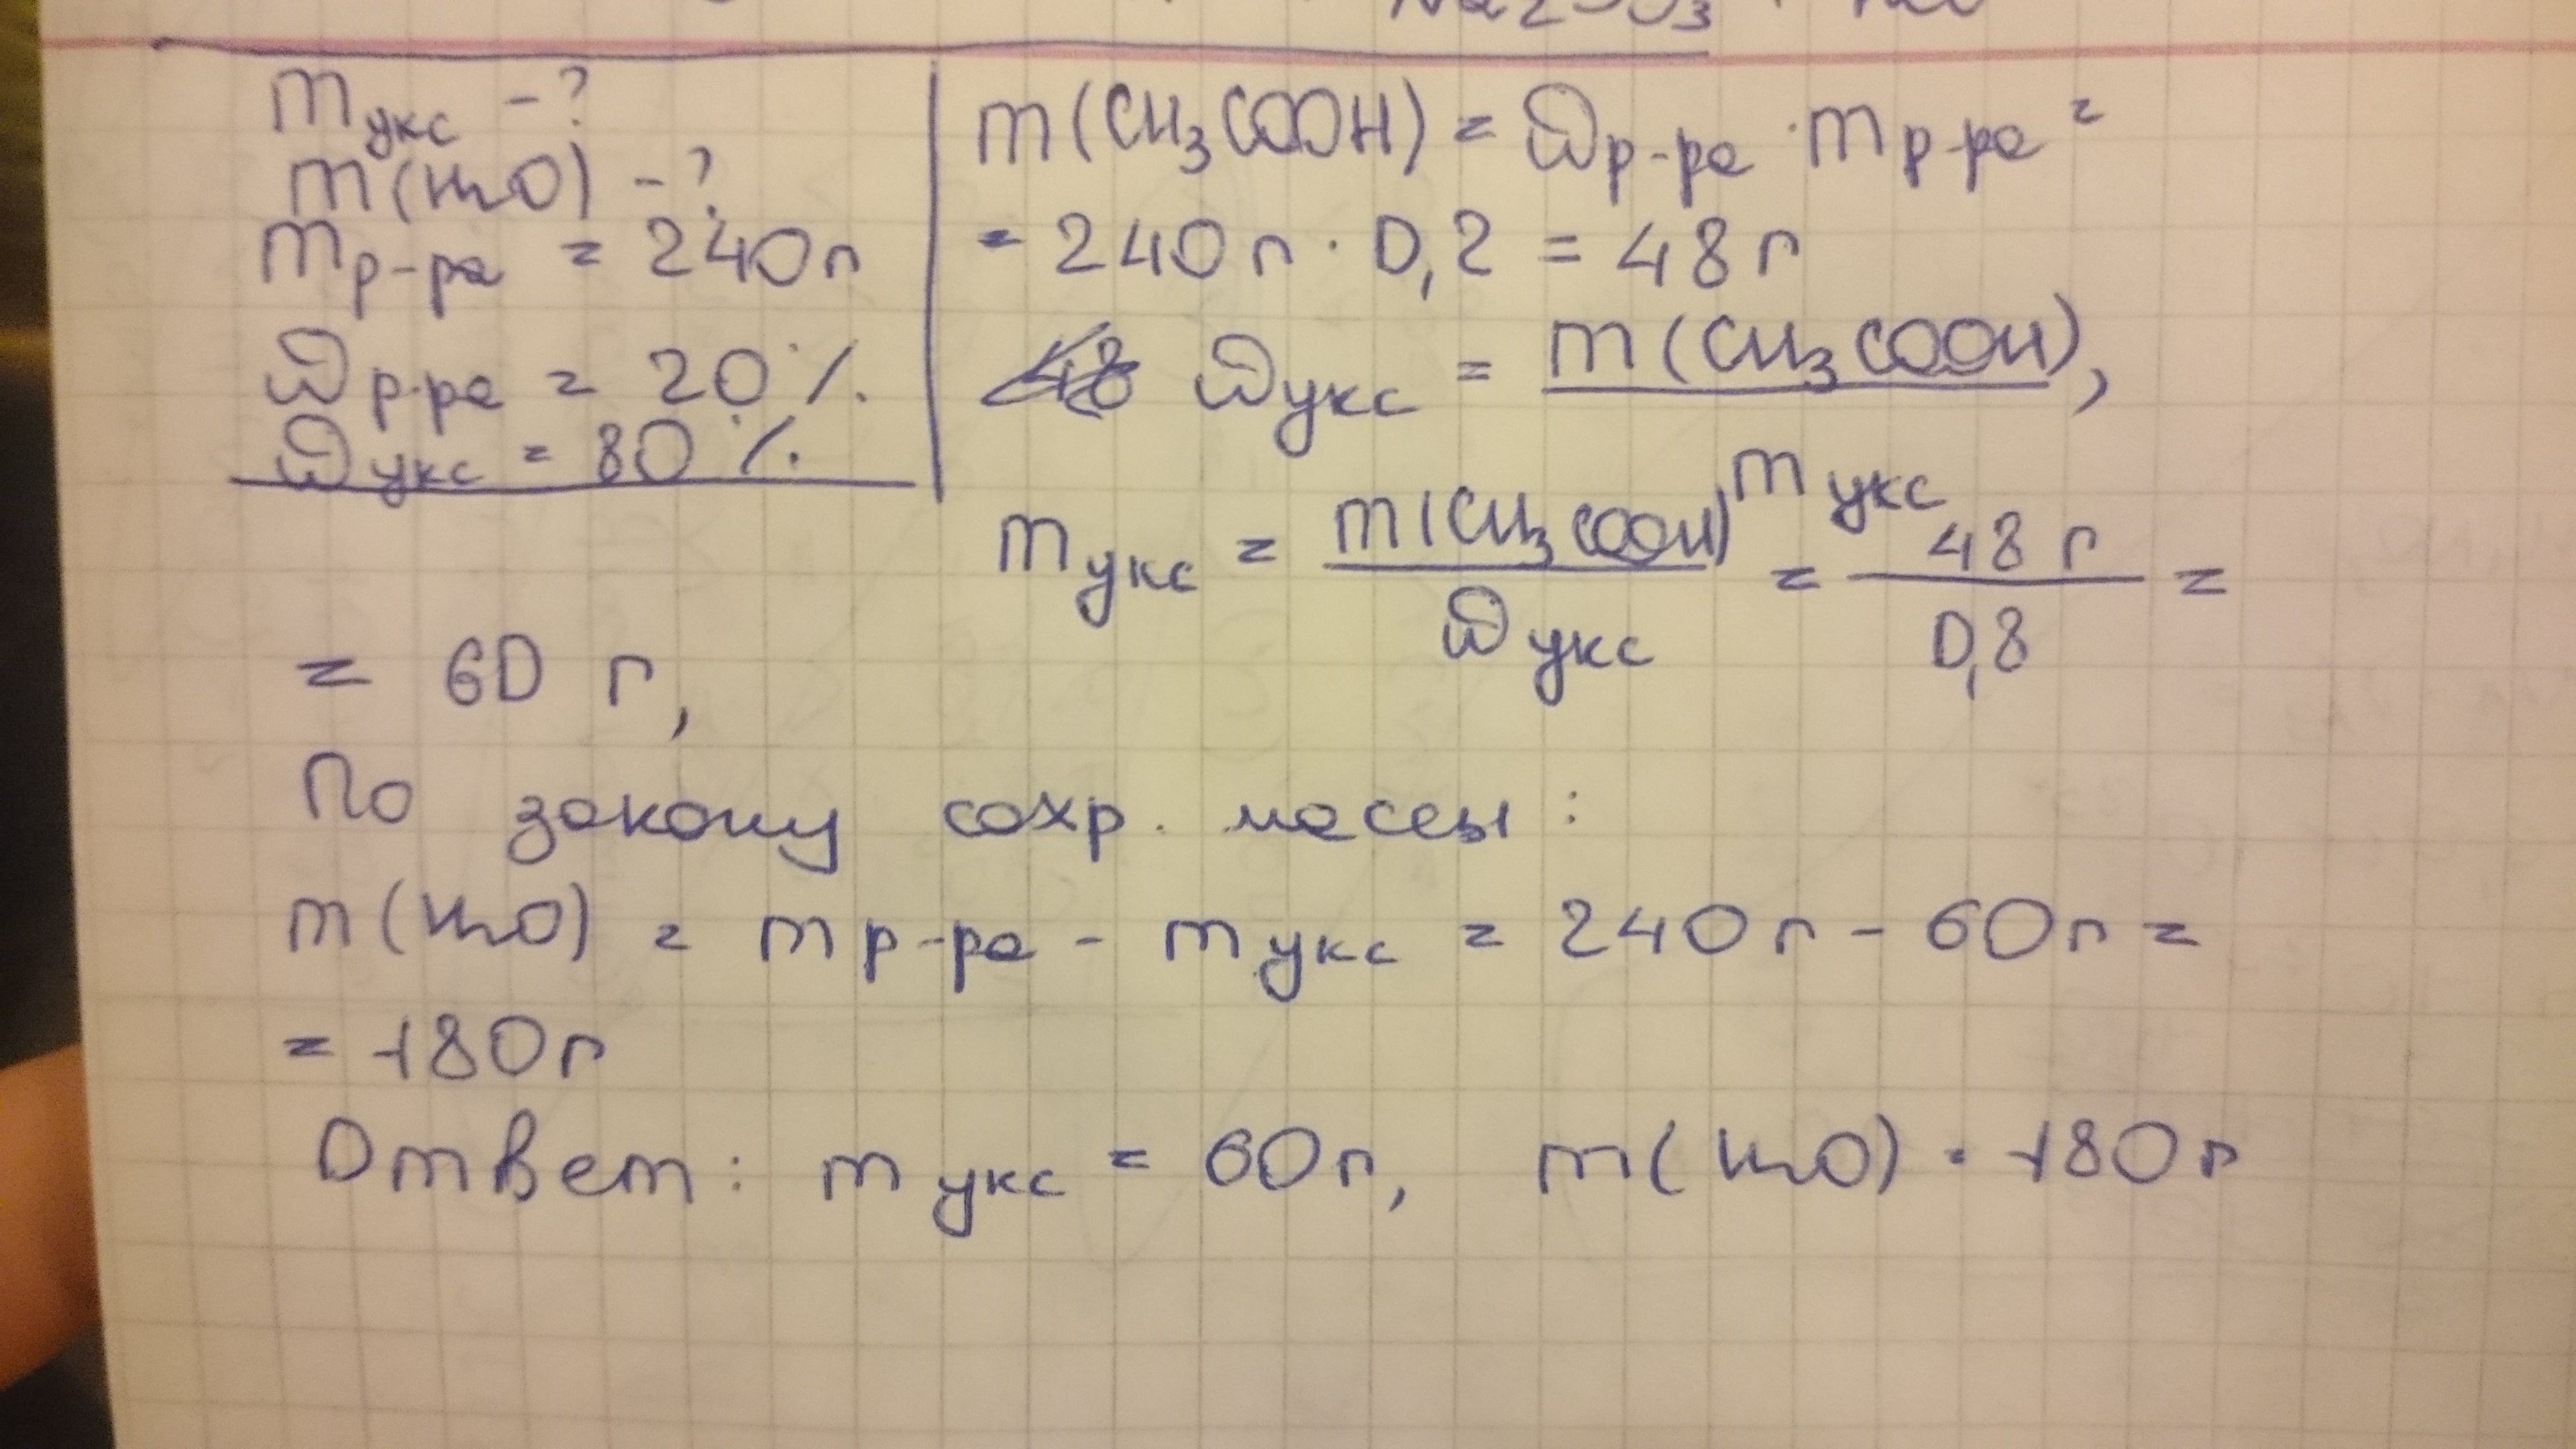 Na₂SO₃ +
m укс - ?
m(H₂O) - ?
m р-ра = 240 г
ω р-ра = 20 %
ω укс = 80 %
m(CH₃COOH) = ω р-ра · m р-ра =
= 240 г · 0,2 = 48 г
ω укс = m(CH₃COOH) / m укс,
m укс = m(CH₃COOH) / ω укс = 48 г / 0,8 =
= 60 г,
По закону сохр. массы :
m(H₂O) = m р-ра - m укс = 240 г - 60 г =
= 180 г
Ответ : m укс = 60 г, m(H₂O) = 180 г